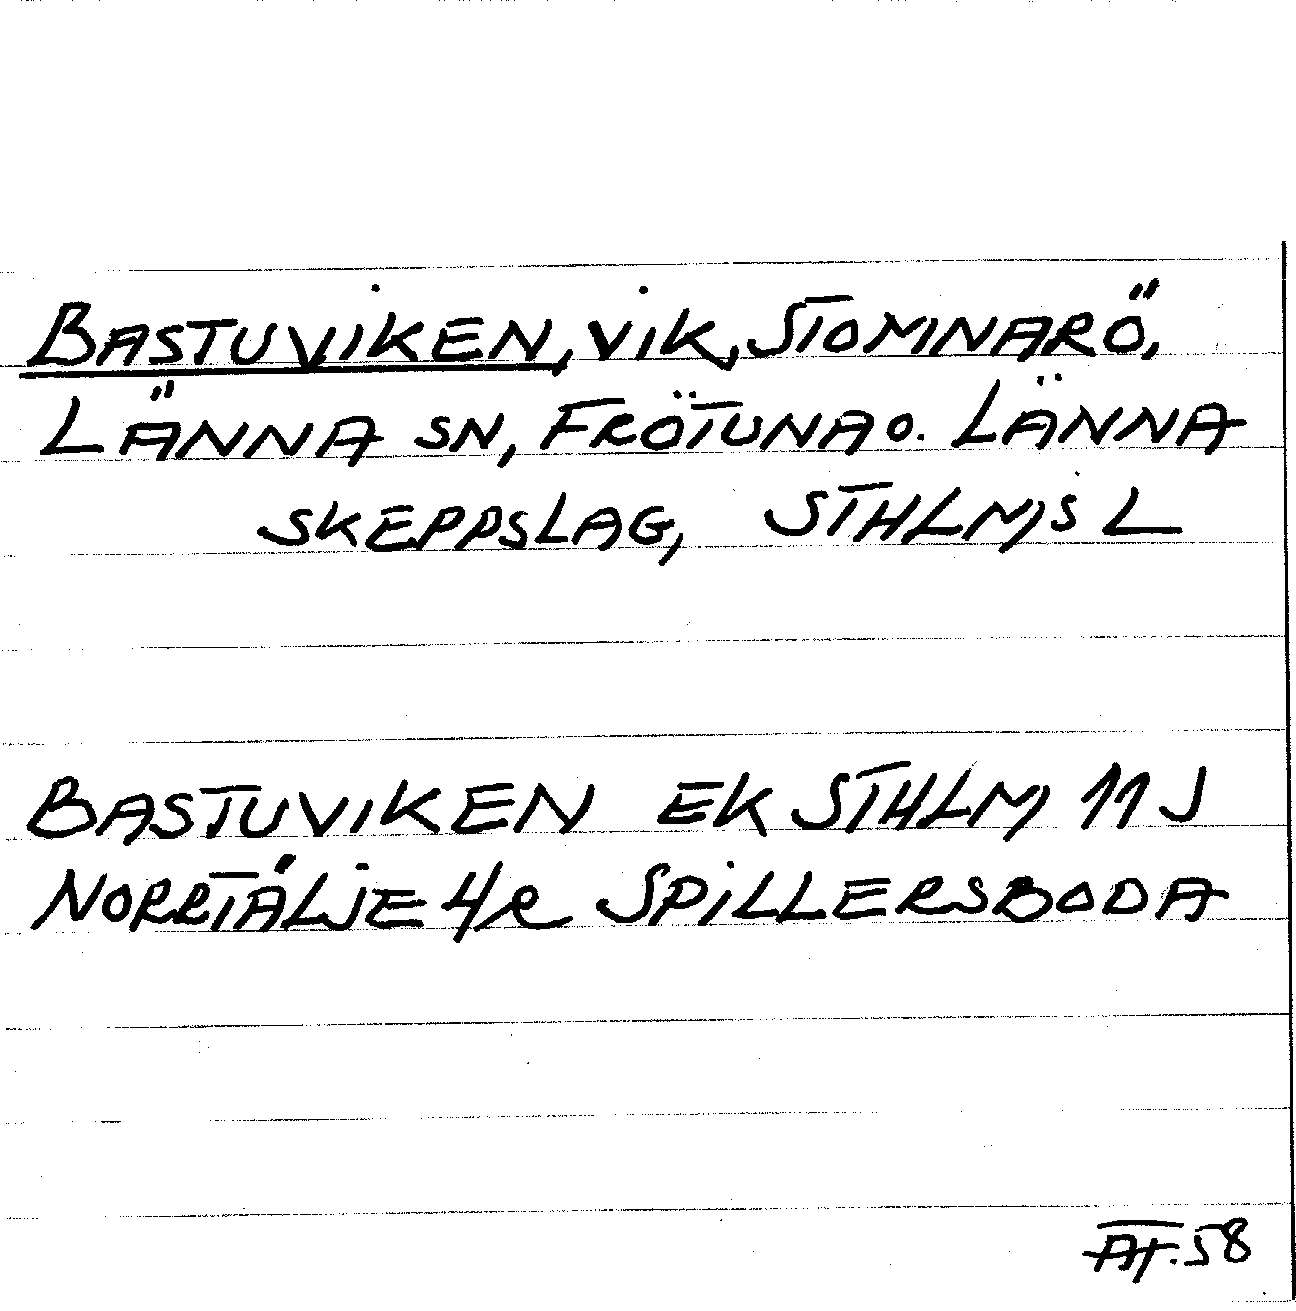 BASTUVIKEN, VIK, STOMNARÖ,
LÄNNA SN, FRÖTUNA O. LÄNNA
SKEPPSLAG, STHLMS L
BASTUVIKEN EK STHLM 11 J
NORRTÄLJE 4/2 SPILLERSBODA
AT. 58